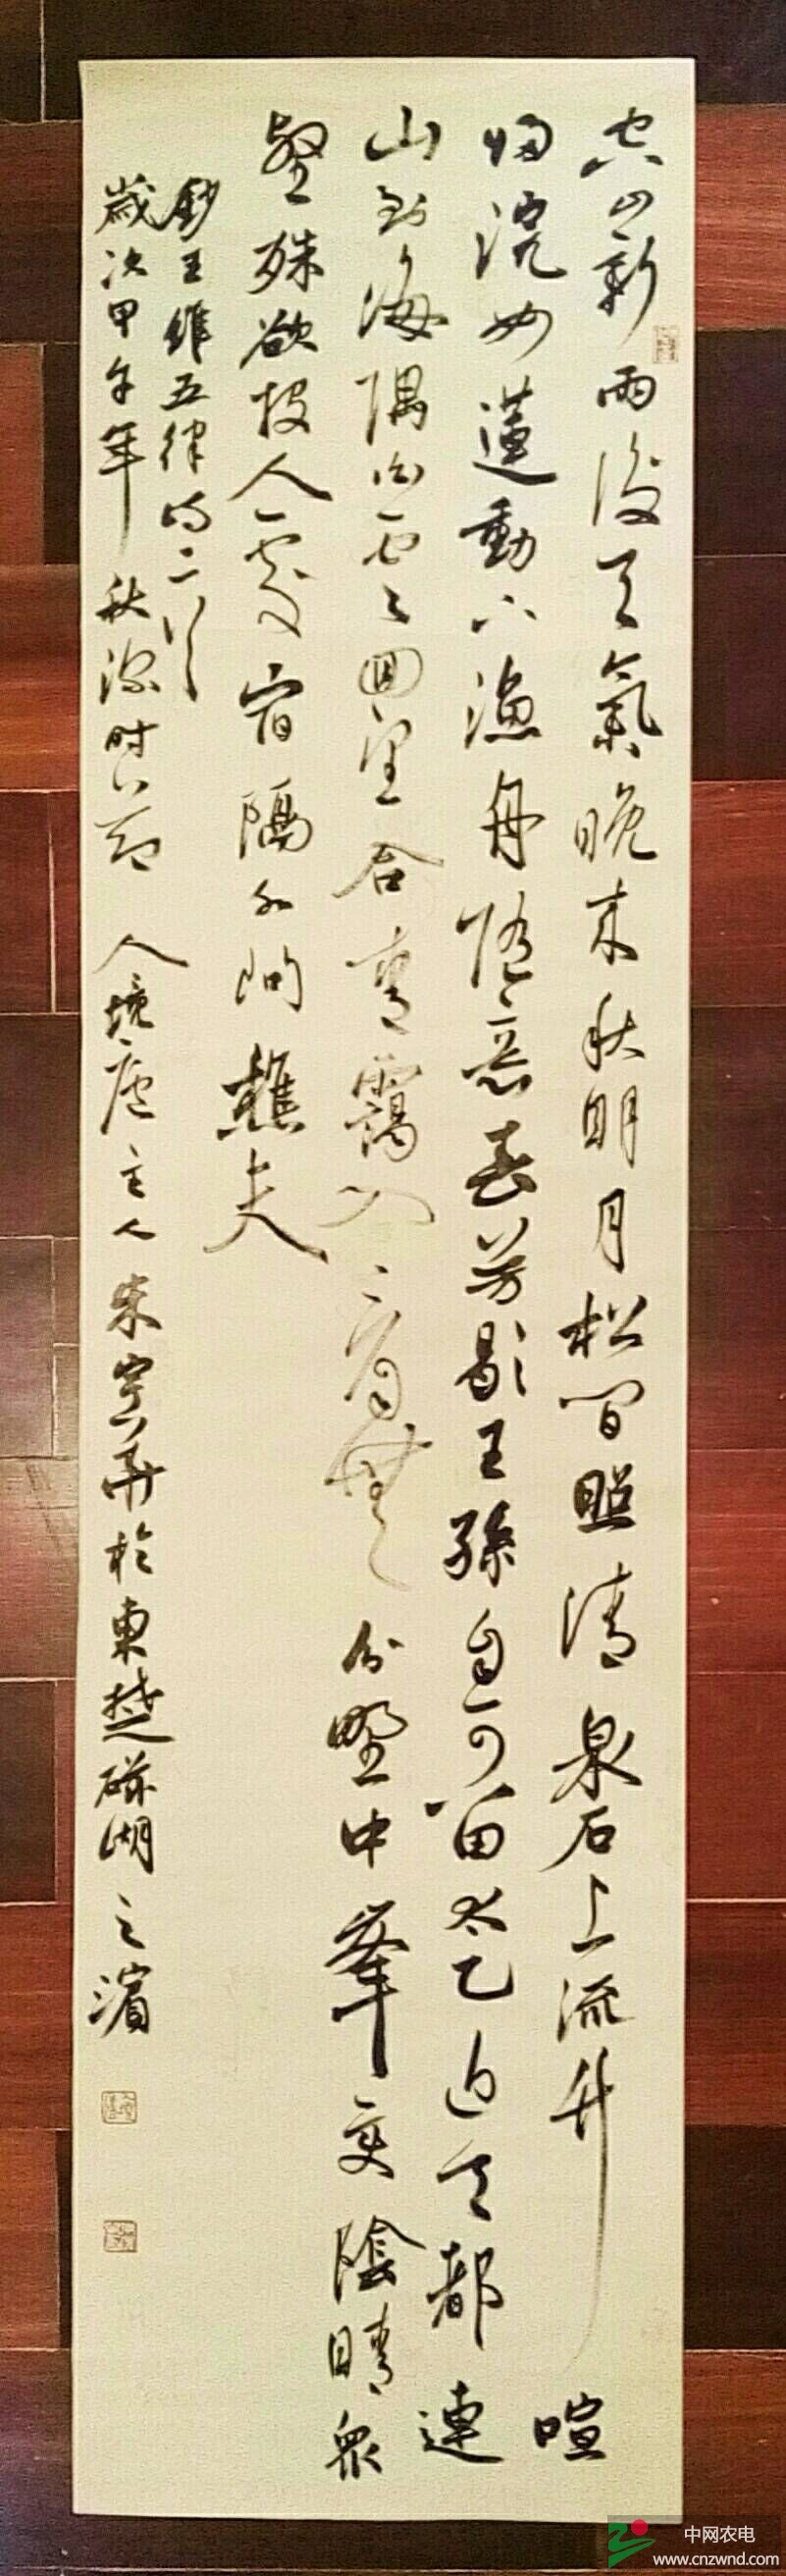 空山新雨後天氣晚來秋明月松間照清泉石上流竹喧
歸浣女蓮動下漁舟隨意春芳歇王孫自可留太乙近天都連
山到海隅白雲回望合青靄入看無分野中峯變陰晴眾
壑殊欲投人處宿隔水問樵夫
鈔王維五律詩二首
歲次甲午年秋深時節人境廬主人朱寧於東楚磁湖之濱
中网农电
www.cnzwnd.com